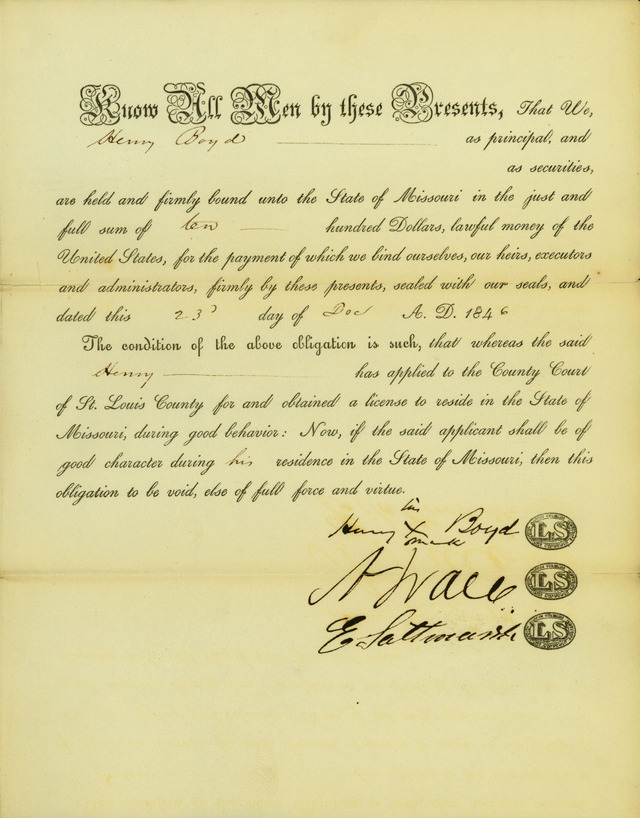 Know All Men by these Presents, That We,
Henry Boyd as principal, and
as securities,
are held and firmly bound unto the State of Missouri in the just and
full sum of ten hundred Dollars, lawful money of the
United States, for the payment of which we bind ourselves, our heirs, executors
and administrators, firmly by these presents, sealed with our seals, and
dated this 23d day of Dec A. D. 1846
The condition of the above obligation is such, that whereas the said
Henry has applied to the County Court
of St. Louis County for and obtained a license to reside in the State of
Missouri, during good behavior: Now, if the said applicant shall be of
good character during his residence in the State of Missouri, then this
obligation to be void, else of full force and virtue.
his
Henry X Boyd LS
mark
LS
LS